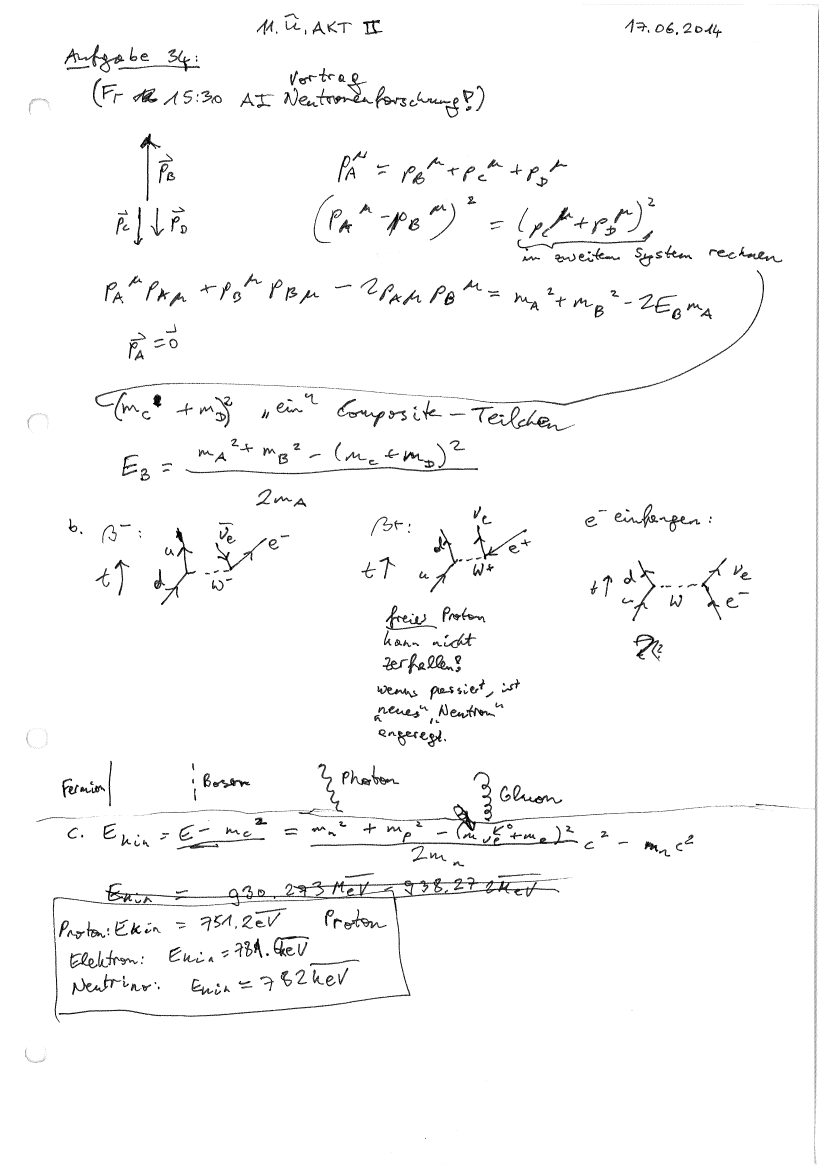 11. Ü, AKT II 17.06.2014
Aufgabe 34:
(Fr 15:30 AI Vortrag Neutronenforschung!)
p⃗_B
p⃗_C p⃗_D
p_A^μ = p_B^μ + p_C^μ + p_D^μ
(p_A^μ - p_B^μ)^2 = (p_C^μ + p_D^μ)^2
in zweitem System rechnen
p_A^μ p_Aμ + p_B^μ p_Bμ - 2p_Aμ p_B^μ = m_A^2 + m_B^2 - 2E_B m_A
p⃗_A = 0⃗
(m_C + m_D)^2 „ein“ Composite-Teilchen
E_B = (m_A^2 + m_B^2 - (m_C + m_D)^2) / 2m_A
b. β-: β+: e- einfangen:
t↑ u d W- ν̄_e e-
t↑ d u W+ ν_e e+
t↑ d u W ν_e e-
freies Proton
kann nicht
zerfallen!
wenns passiert, ist
neues „Neutron“
angeregt.
Fermion Boson Photon Gluon
c. E_kin = E - mc^2 = (m_n^2 + m_p^2 - (m_νe + m_e)^2) / 2m_n c^2 - m_n c^2
E_kin = 930.273 MeV - 938.272 MeV
Proton: Ekin = 751.2eV Proton
Elektron: Ekin = 781.6keV
Neutrino: Ekin = 782keV